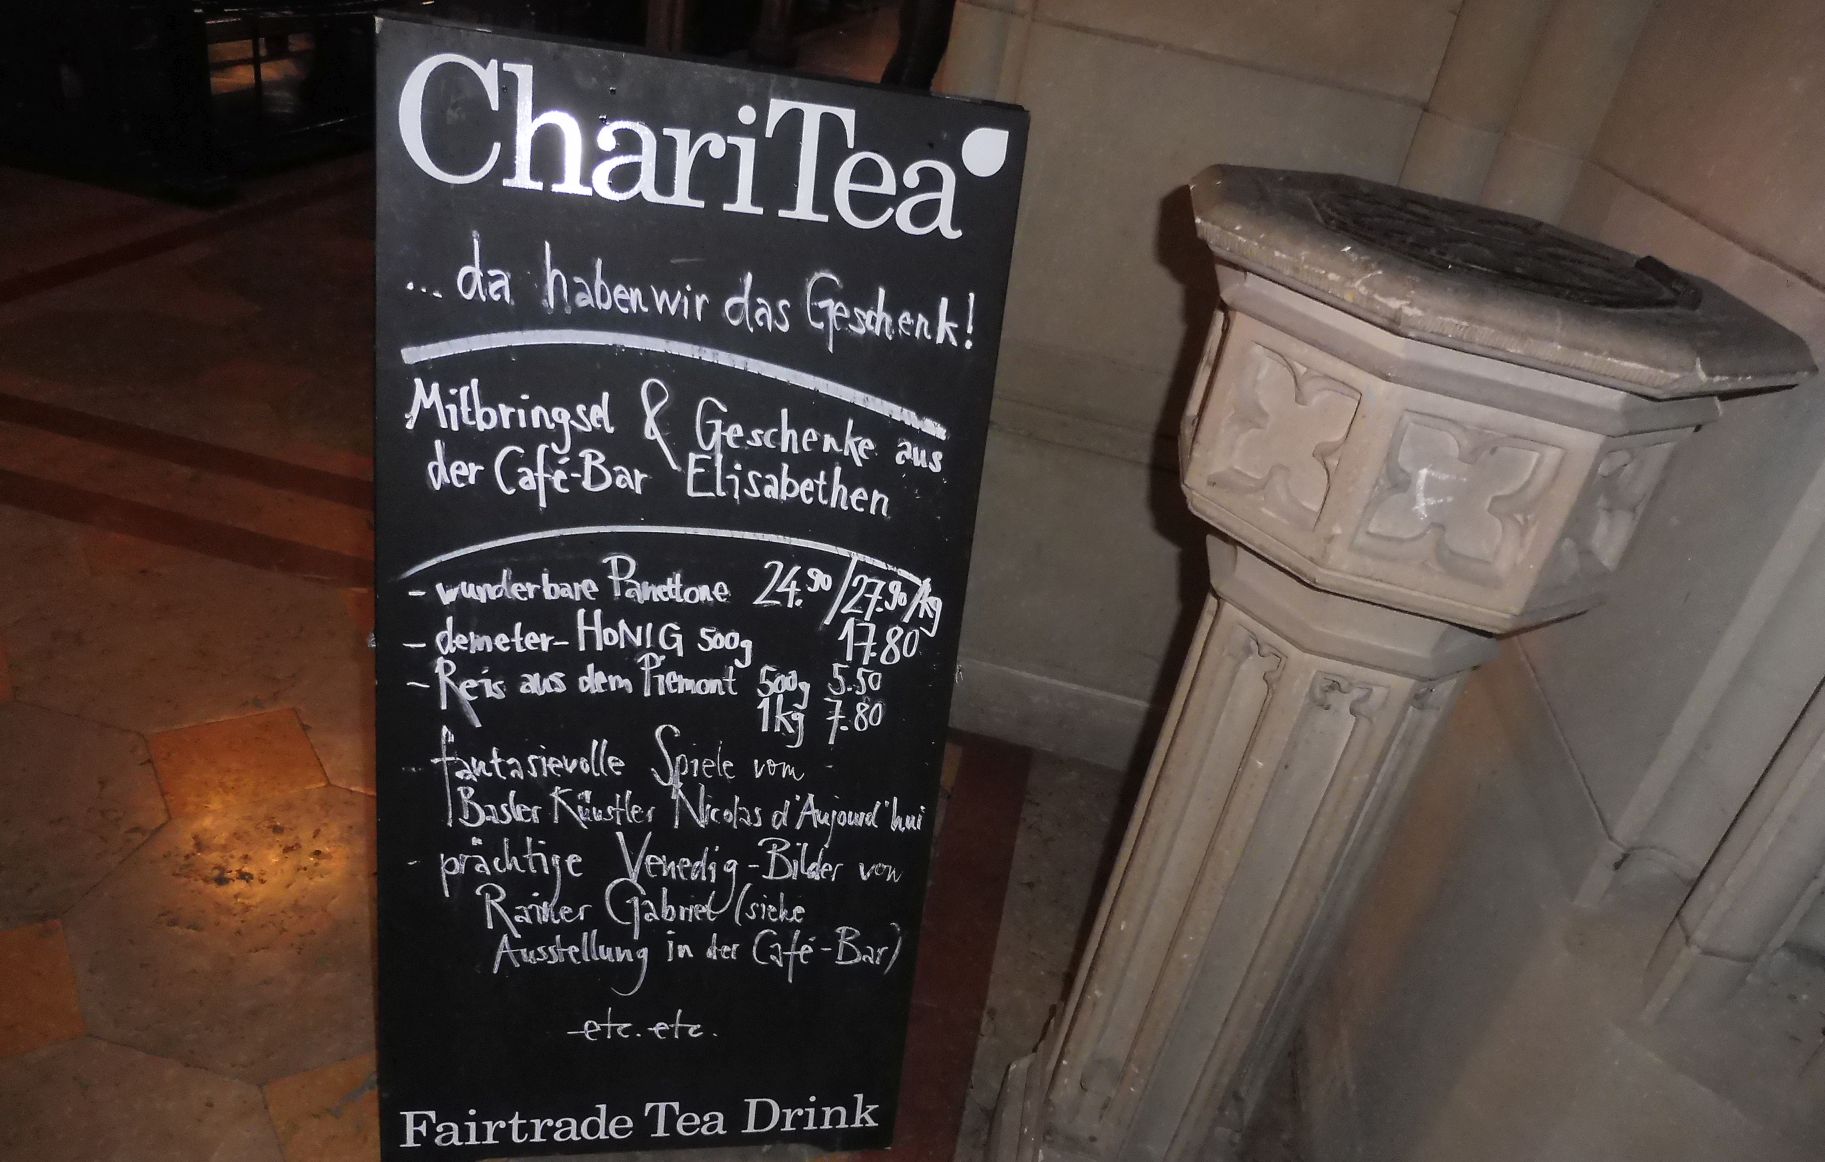 ChariTea
... da haben wir das Geschenk!
Mitbringsel & Geschenke aus
der Café-Bar Elisabethen
- wunderbare Panettone 24.90/27.90/kg
- demeter-HONIG 500g 17.80
- Reis aus dem Piemont 500g 5.50
1kg 7.80
- fantasievolle Spiele vom
Basler Künstler Nicolas d'Aujourd'hui
- prächtige Venedig-Bilder von
Rainer Gabriel (siehe
Ausstellung in der Café-Bar)
- etc. etc.
Fairtrade Tea Drink